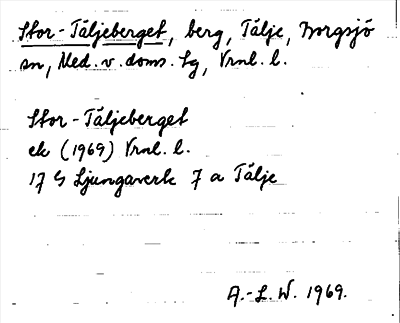 Stor-Täljeberget, berg, Tälje, Borgsjö
sn, Med. v. doms. tg, Vrnl. l.
Stor-Täljeberget
ek (1969) Vrnl. l.
17 G Ljungaverk 7 a Tälje
A.-L. W. 1969.